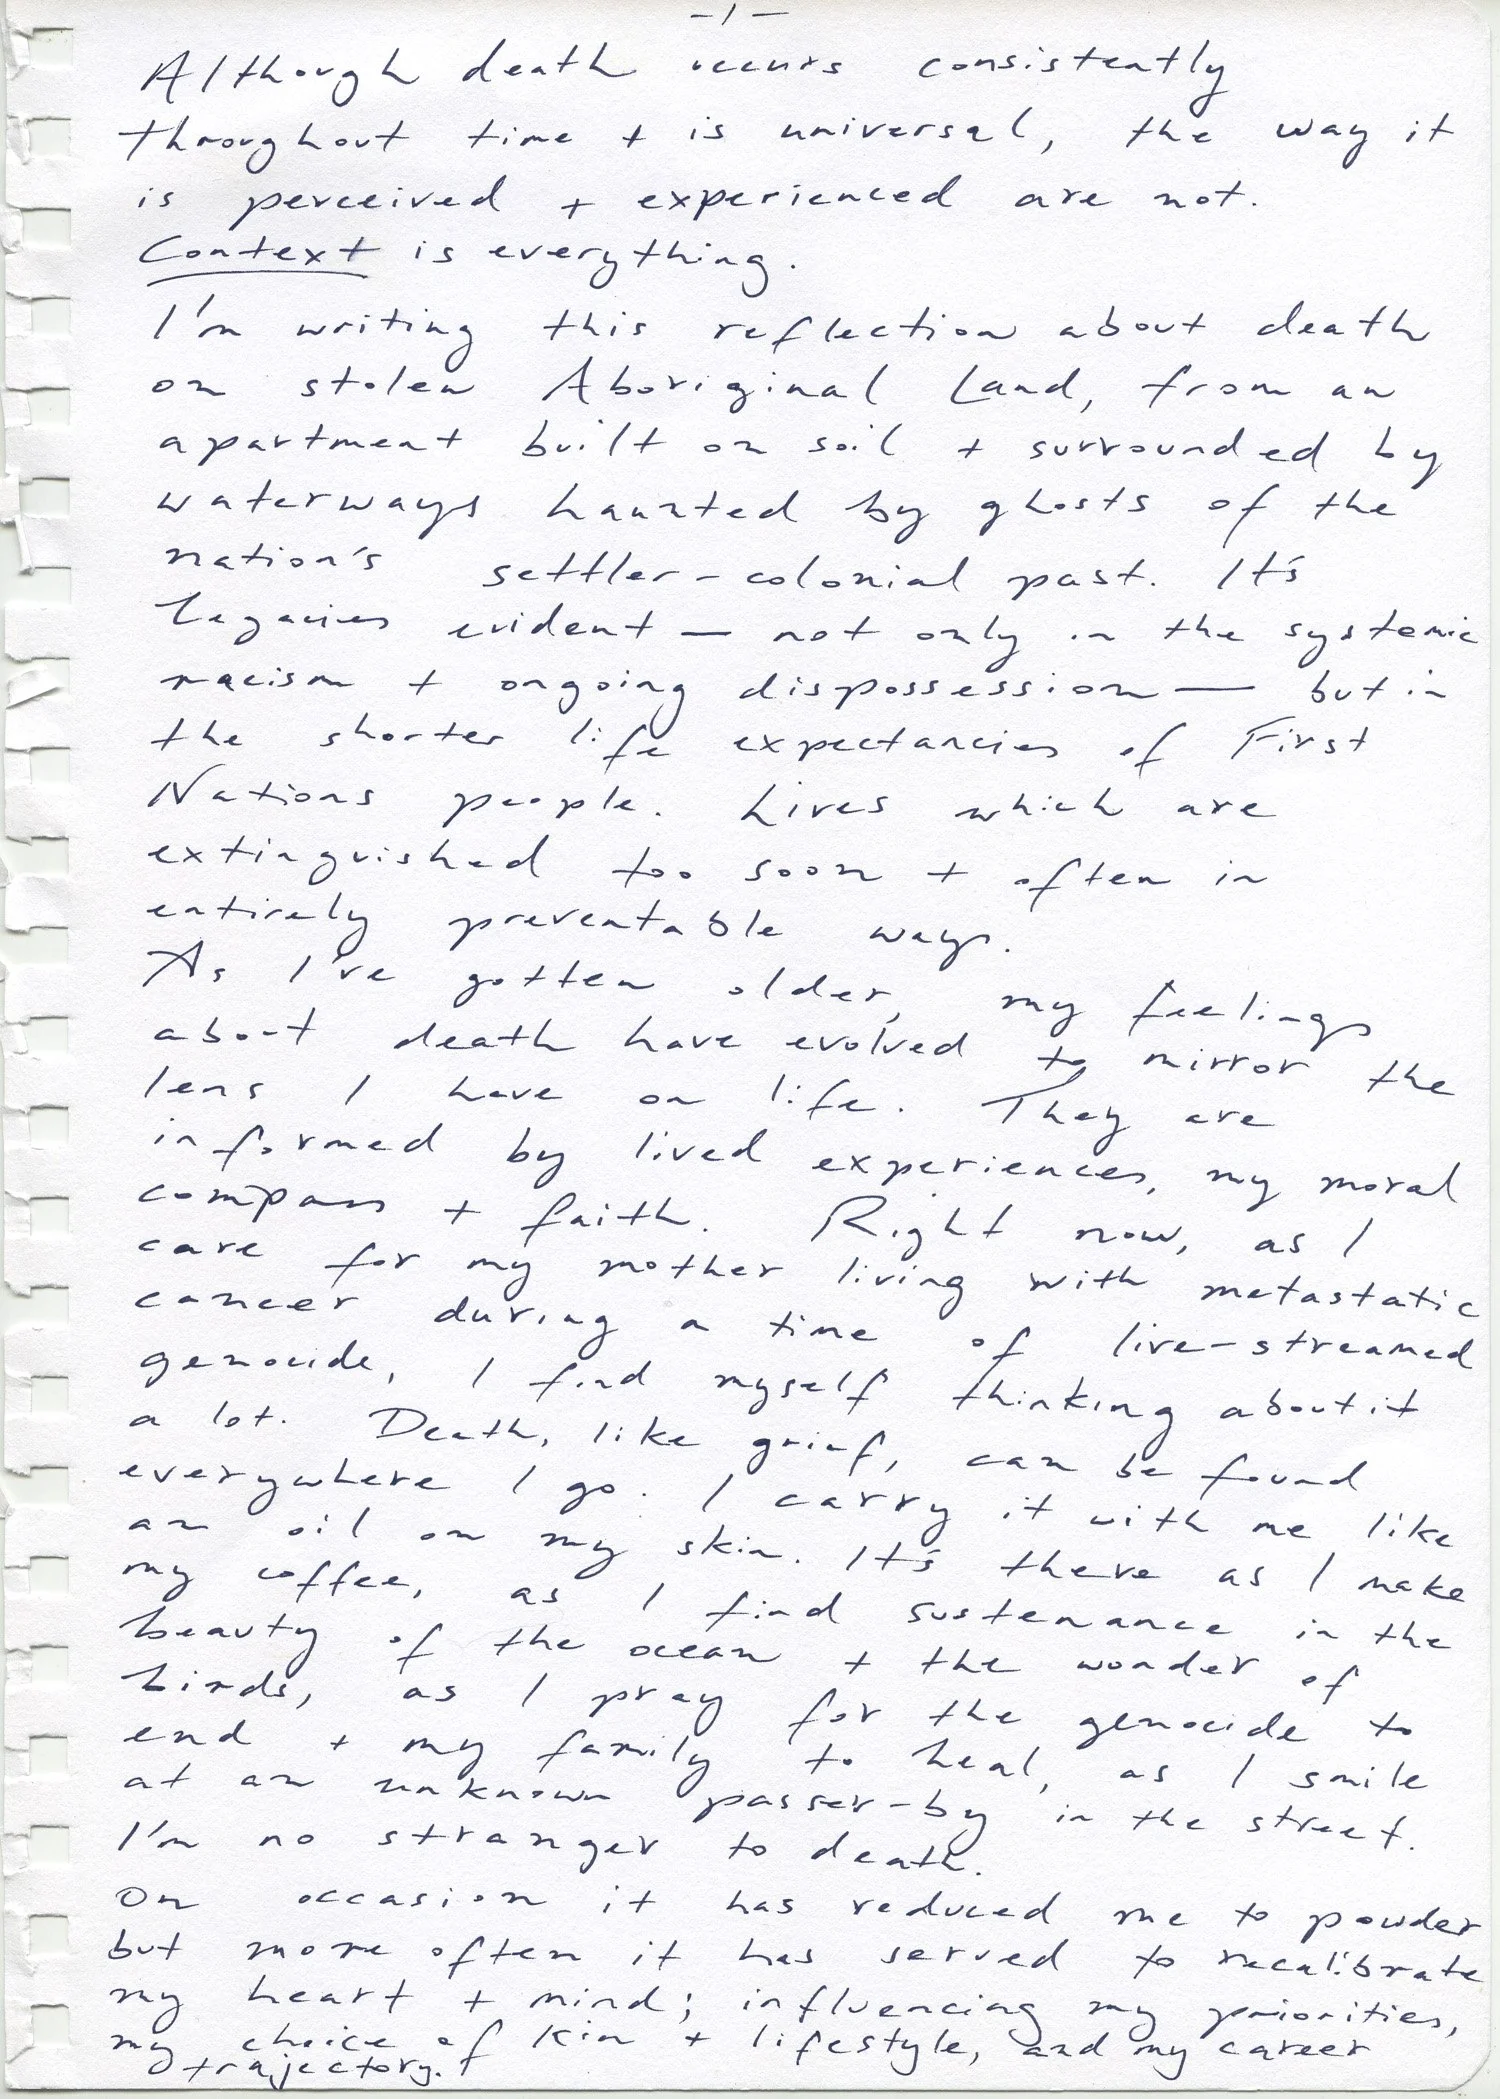 -1-
Although death occurs consistently
throughout time + is universal, the way it
is perceived + experienced are not.
Context is everything.
I'm writing this reflection about death
on stolen Aboriginal Land, from an
apartment built on soil + surrounded by
waterways haunted by ghosts of the
nation's settler-colonial past. It's
legacies evident — not only in the systemic
racism + ongoing dispossession — but in
the shorter life expectancies of First
Nations people. Lives which are
extinguished too soon + often in
entirely preventable ways.
As I've gotten older, my feelings
about death have evolved to mirror the
lens I have on life. They are
informed by lived experiences, my moral
compass + faith. Right now, as I
care for my mother living with metastatic
cancer during a time of live-streamed
genocide, I find myself thinking about it
a lot. Death, like grief, can be found
everywhere I go. I carry it with me like
an oil on my skin. It's there as I make
my coffee, as I find sustenance in the
beauty of the ocean + the wonder of
birds, as I pray for the genocide to
end + my family to heal, as I smile
at an unknown passer-by in the street.
I'm no stranger to death.
On occasion it has reduced me to powder
but more often it has served to recalibrate
my heart + mind; influencing my priorities,
my choice of kin + lifestyle, and my career
trajectory.